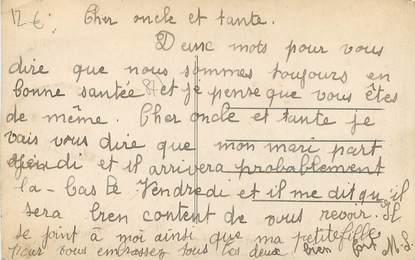 12 €; Cher oncle et tante.
Deux mots pour vous
dire que nous sommes toujours en
bonne santée et je pense que vous êtes
de même. Cher oncle et tante je
vais vous dire que mon mari part
jeudi et il arrivera probablement
la-bas le Vendredi et il me dit qu'il
sera bien content de vous revoir. Il
se joint à moi ainsi que ma petite fille
pour vous embrasser tous les deux bien fort M.S.